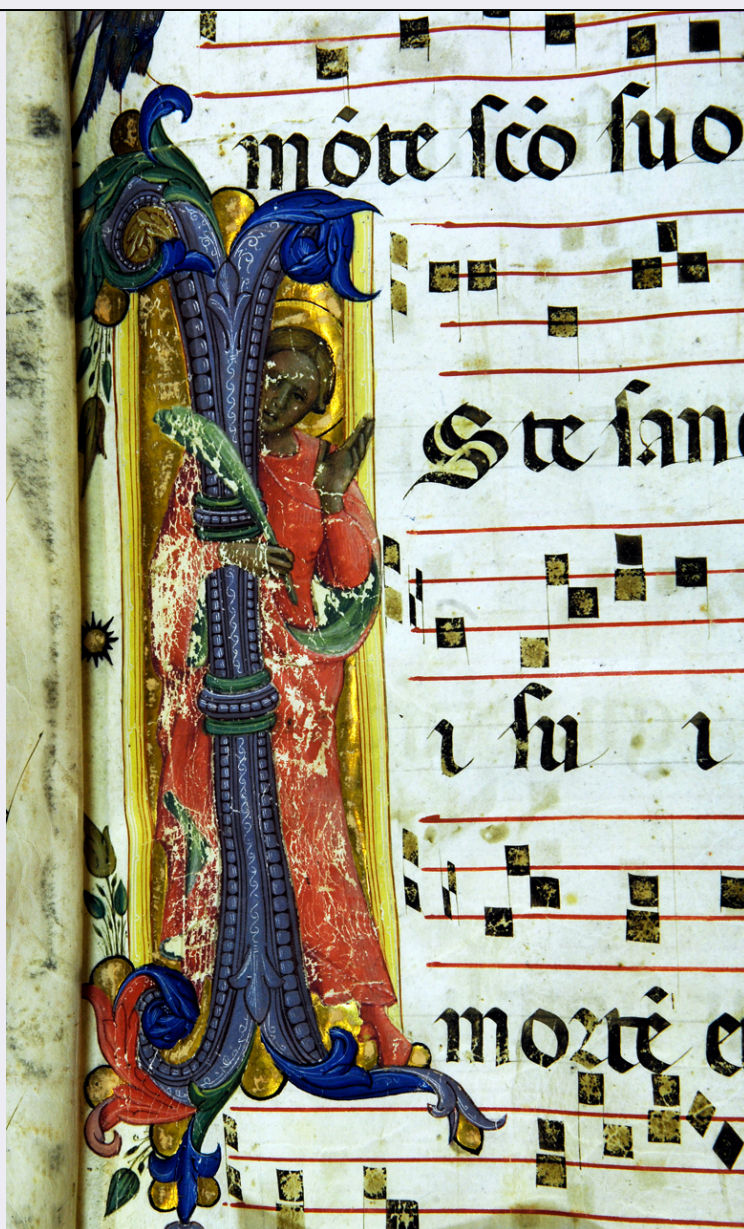 mōte scō suo
I Ste sanc
i su i
mortē e